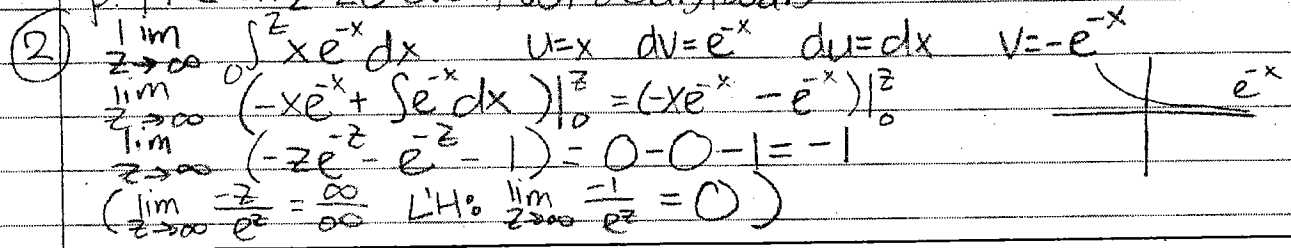 ② lim z→∞ ₀∫ᶻ xe⁻ˣdx u=x dv=e⁻ˣ du=dx v=-e⁻ˣ
lim z→∞ (-xe⁻ˣ + ∫e⁻ˣdx)|₀ᶻ = (-xe⁻ˣ - e⁻ˣ)|₀ᶻ e⁻ˣ
lim z→∞ (-ze⁻ᶻ - e⁻ᶻ - 1) = 0-0-1 = -1
(lim z→∞ -z/eᶻ = ∞/∞ L'H: lim z→∞ -1/eᶻ = 0)